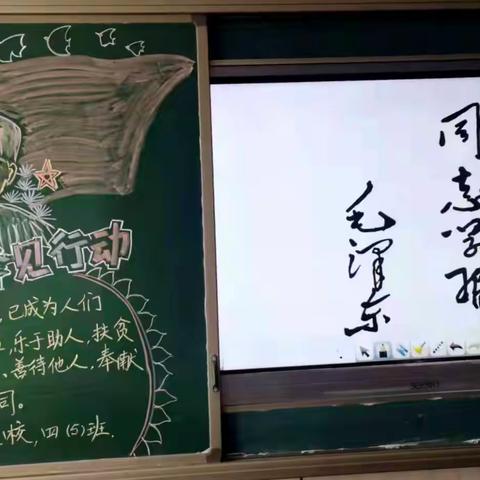 见行动
已成为人们
乐于助人，扶贫
、善待他人，奉献
同。
校，四(5)班.
同志学
毛泽东